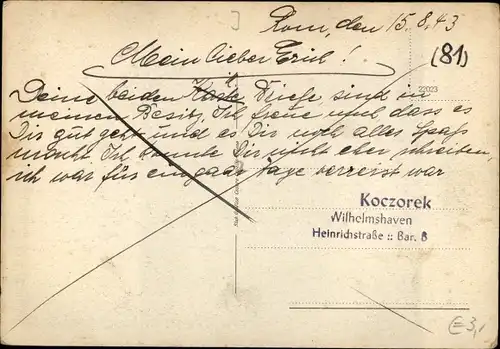 Rom, den 15.8.43
(81)
Mein lieber Erich!
22023
Deine beiden Karte Briefe sind in
meinen Besitz. Ich freue mich dass es
Dir gut geht und es Dir noch alles Spaß
macht. Ich konnte Dir nicht eher schreiben,
ich war für ein paar Tage verreist war
Koczorek
Wilhelmshaven
Heinrichstraße :: Bar. 8
E3,